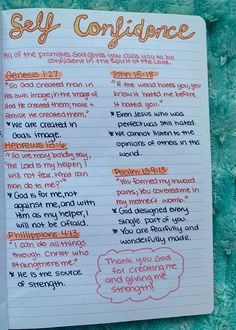 Self Confidence
All of the promises God gives you calls you to be
confident in the Spirit of the Lord.
Genesis 1:27
"So God created man in
His own image, in the image of
God He created them; male +
female He created them."
* We are created in
God's image.
Hebrews 13:6
"So we may boldly say,
'the Lord is my helper, I
will not fear. What can
man do to me?'"
* God is for me, not
against me, and with
Him as my helper, I
will not be afraid.
Philippians 4:13
"I can do all things
through Christ who
strengthens me."
* He is the source
of strength.
John 15:18
"If the world hates you, you
know it hated me before
it hated you."
* Even Jesus who was
perfect was still hated.
* We cannot listen to the
opinions of others in this
world.
Psalm 139:13
"You formed my inward
parts; You covered me in
my mother's womb."
* God designed every
single part of you.
* You are fearfully and
wonderfully made.
Thank you God
for creating me
and giving me
strength!